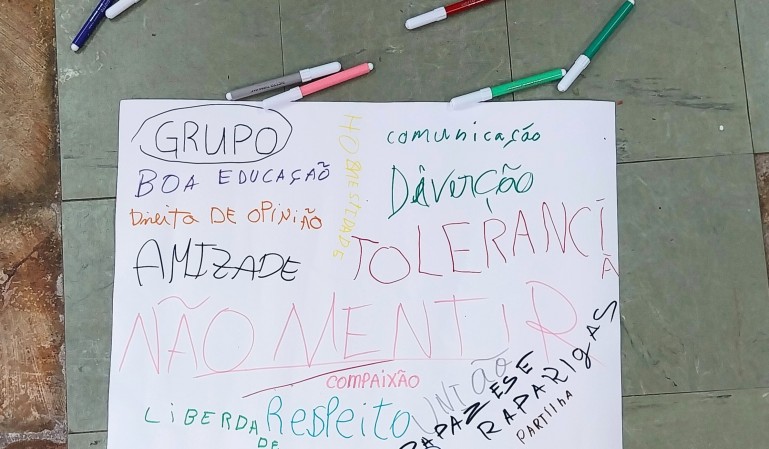 GRUPO
BOA EDUCAÇÃO
Direita DE OPINIÃO
AMIZADE
HONESTIDADE
comunicação
DiverÇão
TOLERANCIA
NÃO MENTIR
COMPAIXÃO
LiBERDA
DE
Respeito
UNIão
RAPAZES E
RAPARIGAS
PARTILHA